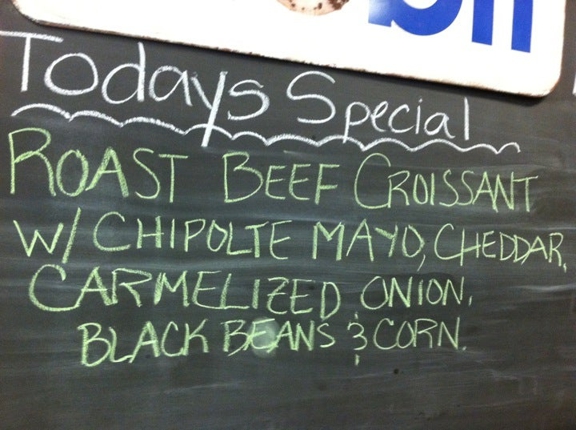 Todays Special
ROAST BEEF CROISSANT
W/ CHIPOLTE MAYO, CHEDDAR,
CARMELIZED ONION,
BLACK BEANS & CORN.